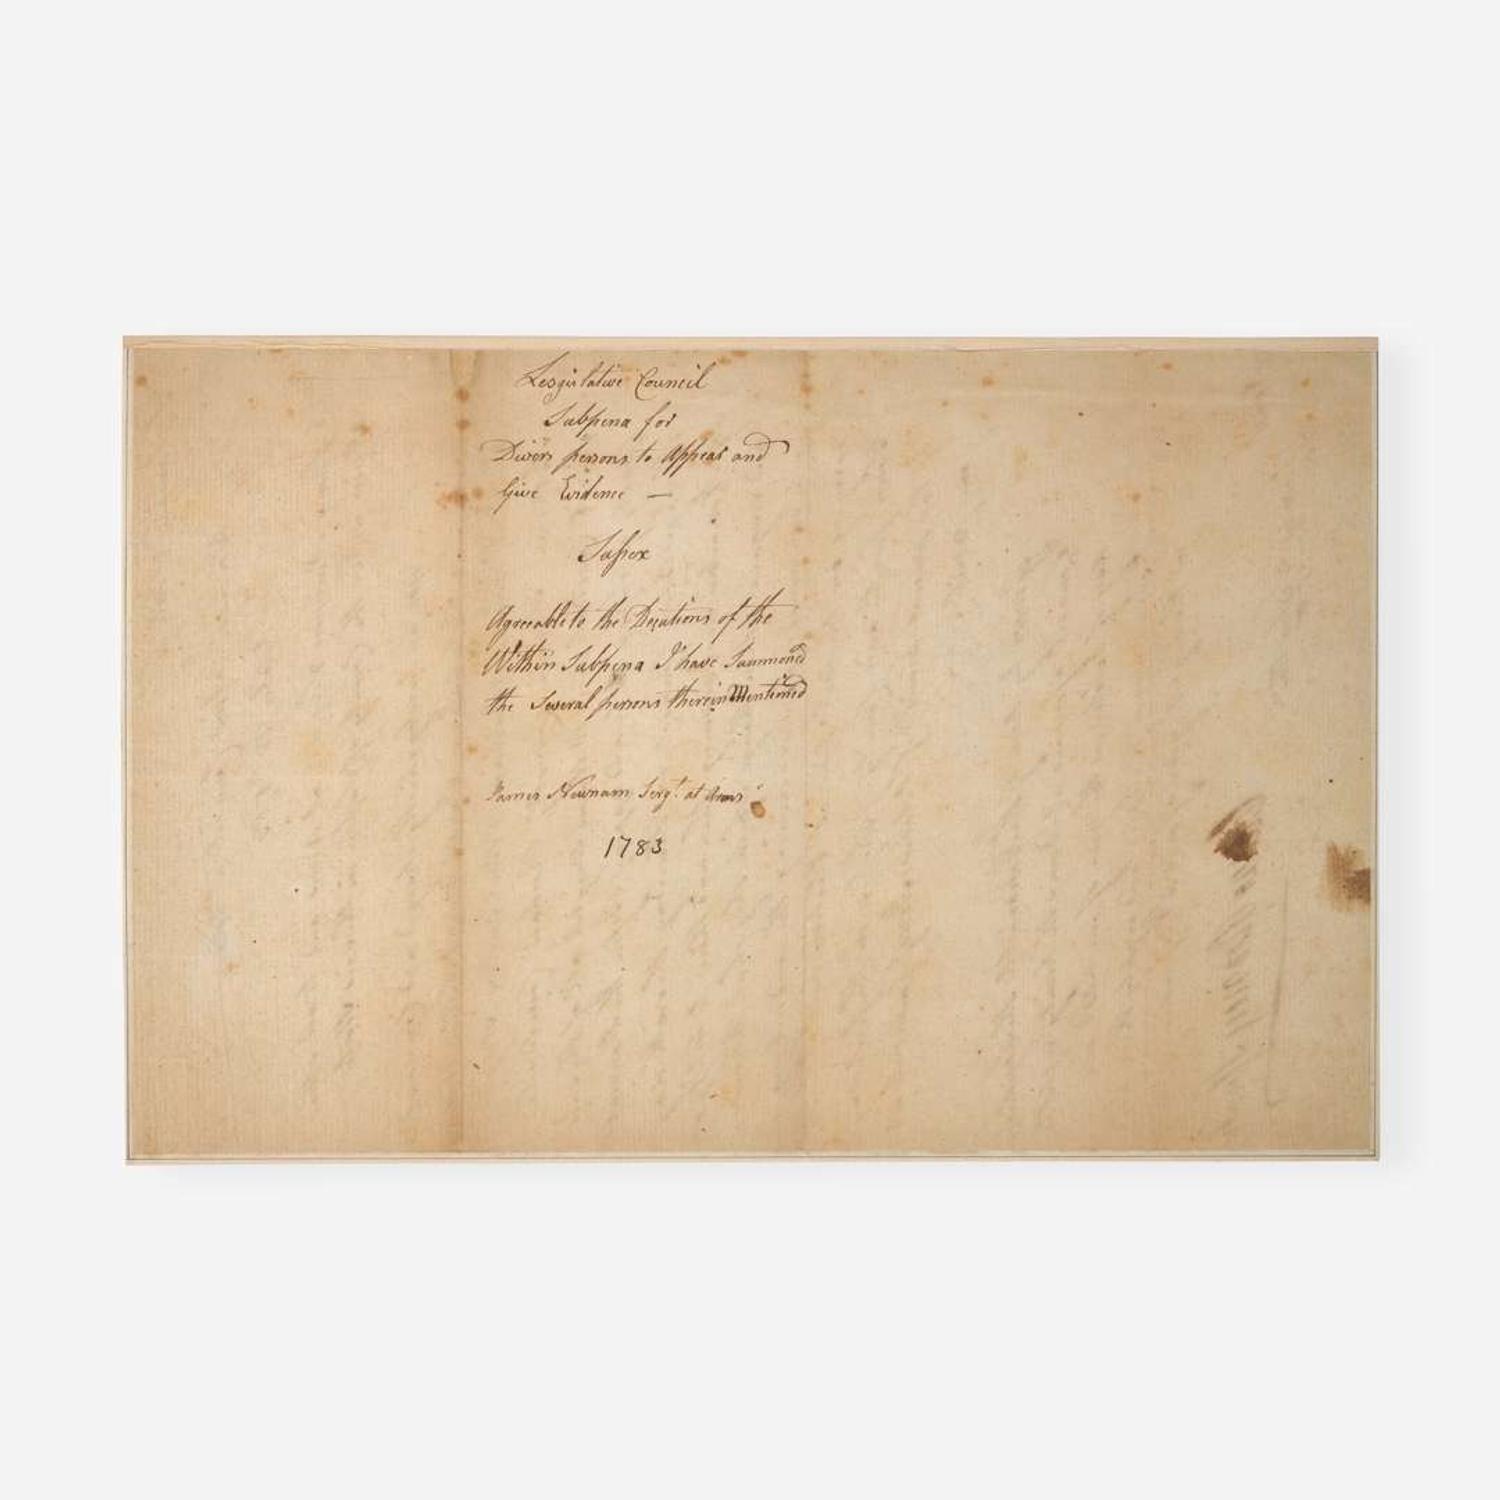 Lesgislative Council
Subpena for
Divers persons to Appear and
Give Evidence —
Sussex
Agreeable to the Directions of the
Within Subpena I have Summoned
the Several persons therein Mentioned
James Newnam Sergt. at Arms
1783